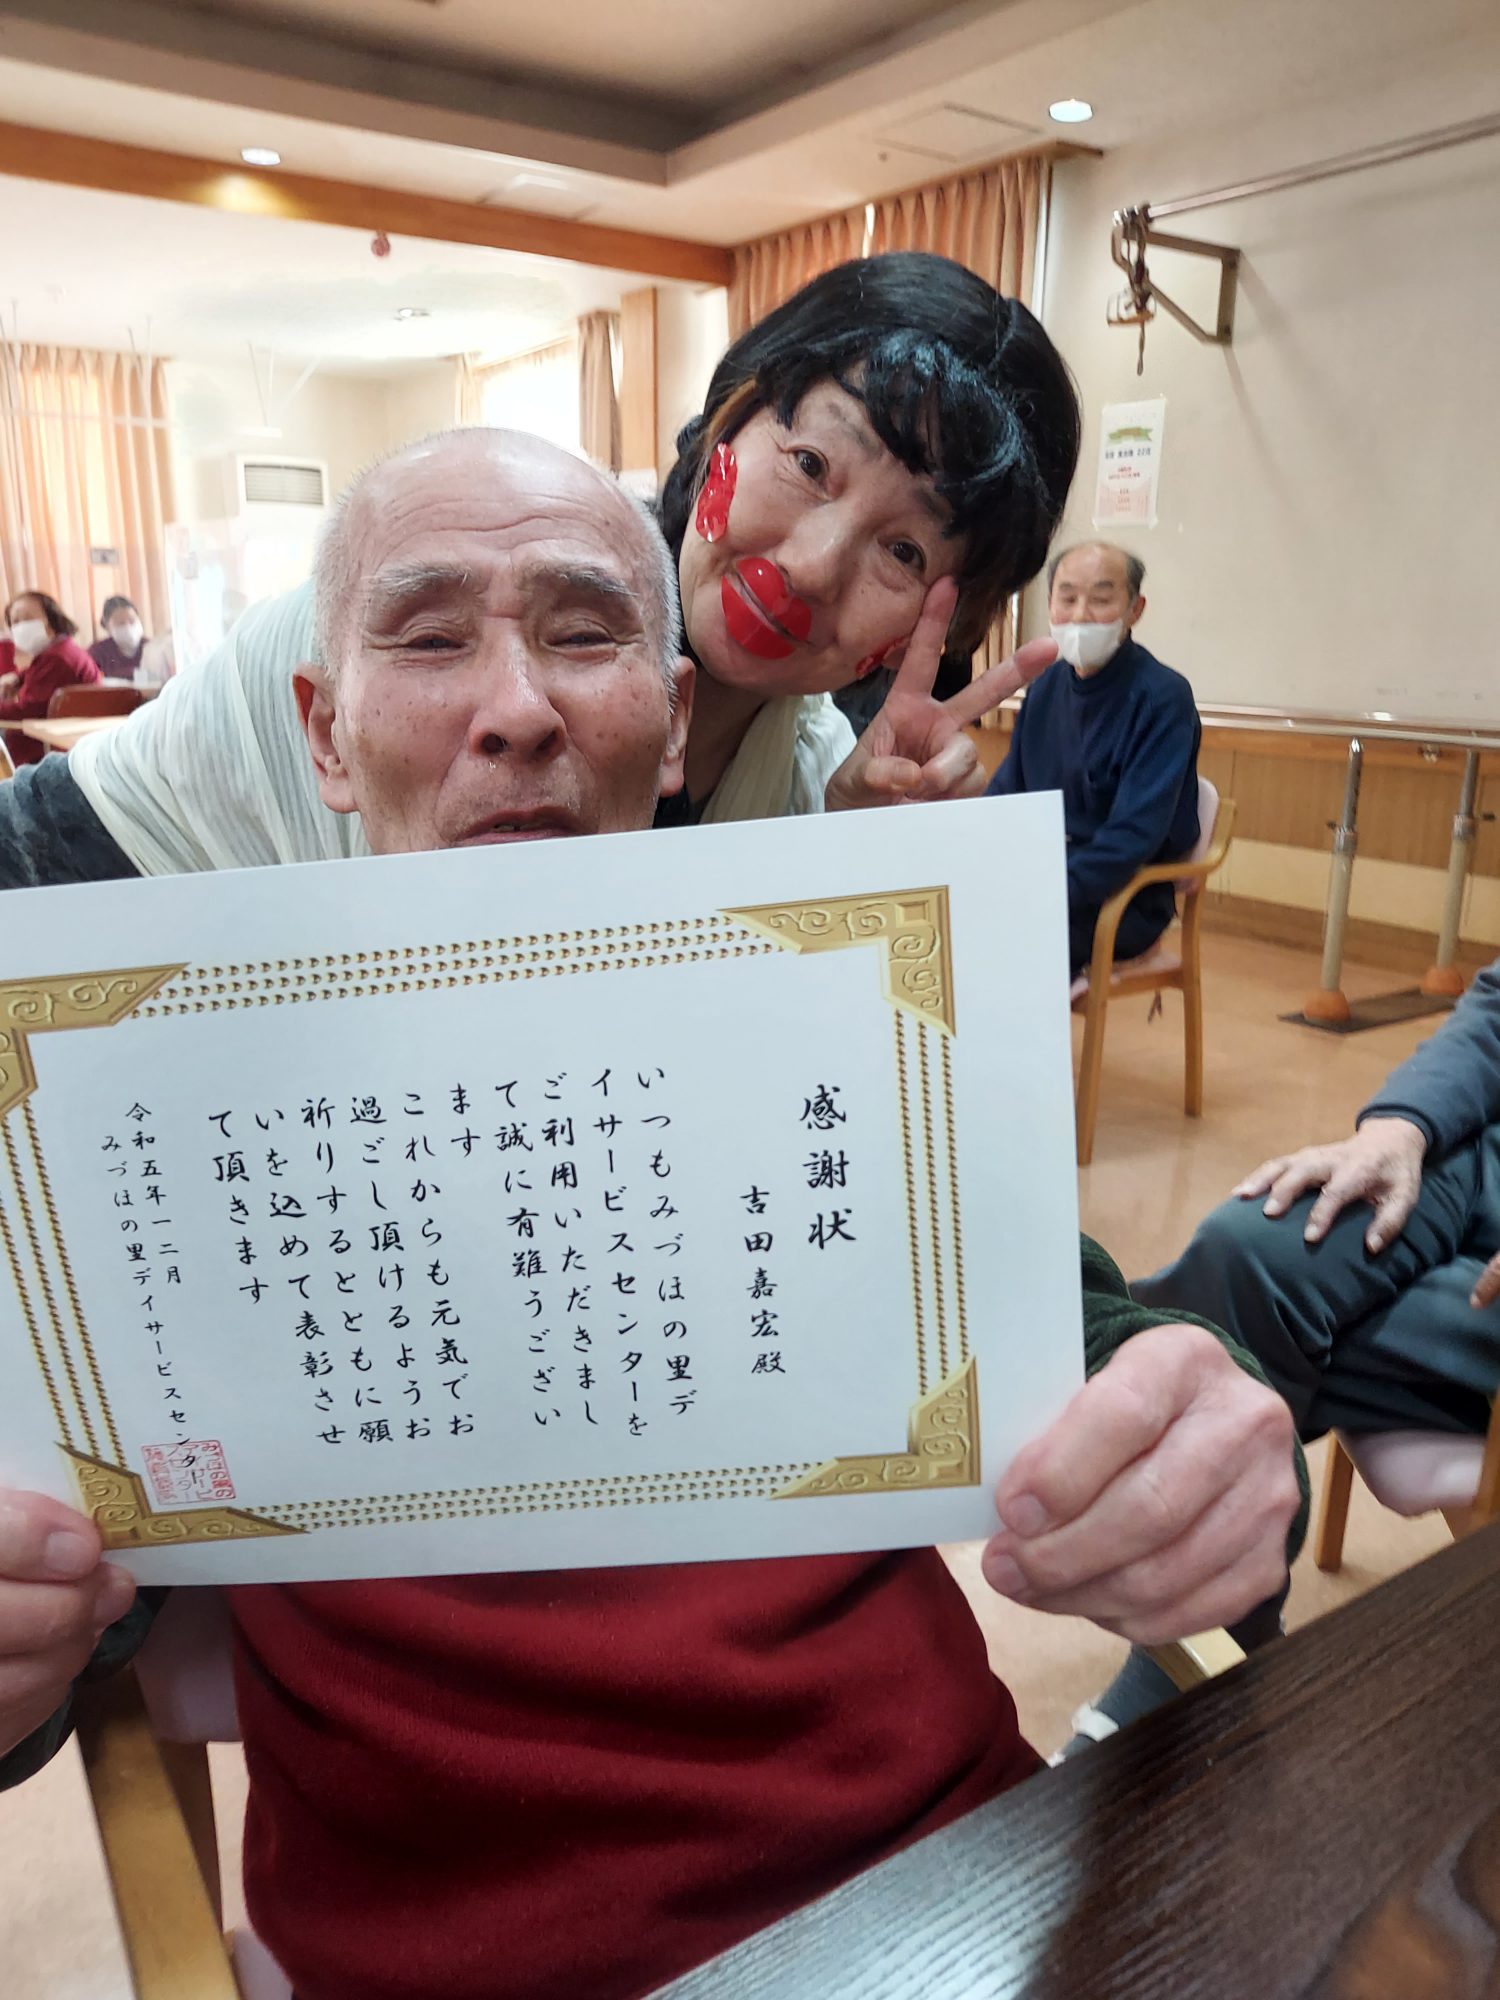 感謝状
吉田嘉宏殿
いつもみづほの里デ
イサービスセンターを
ご利用いただきまし
て誠に有難うござい
ます
これからも元気でお
過ごし頂けるようお
祈りするとともに願
いを込めて表彰させ
て頂きます
令和五年一二月
みづほの里デイサービスセンター